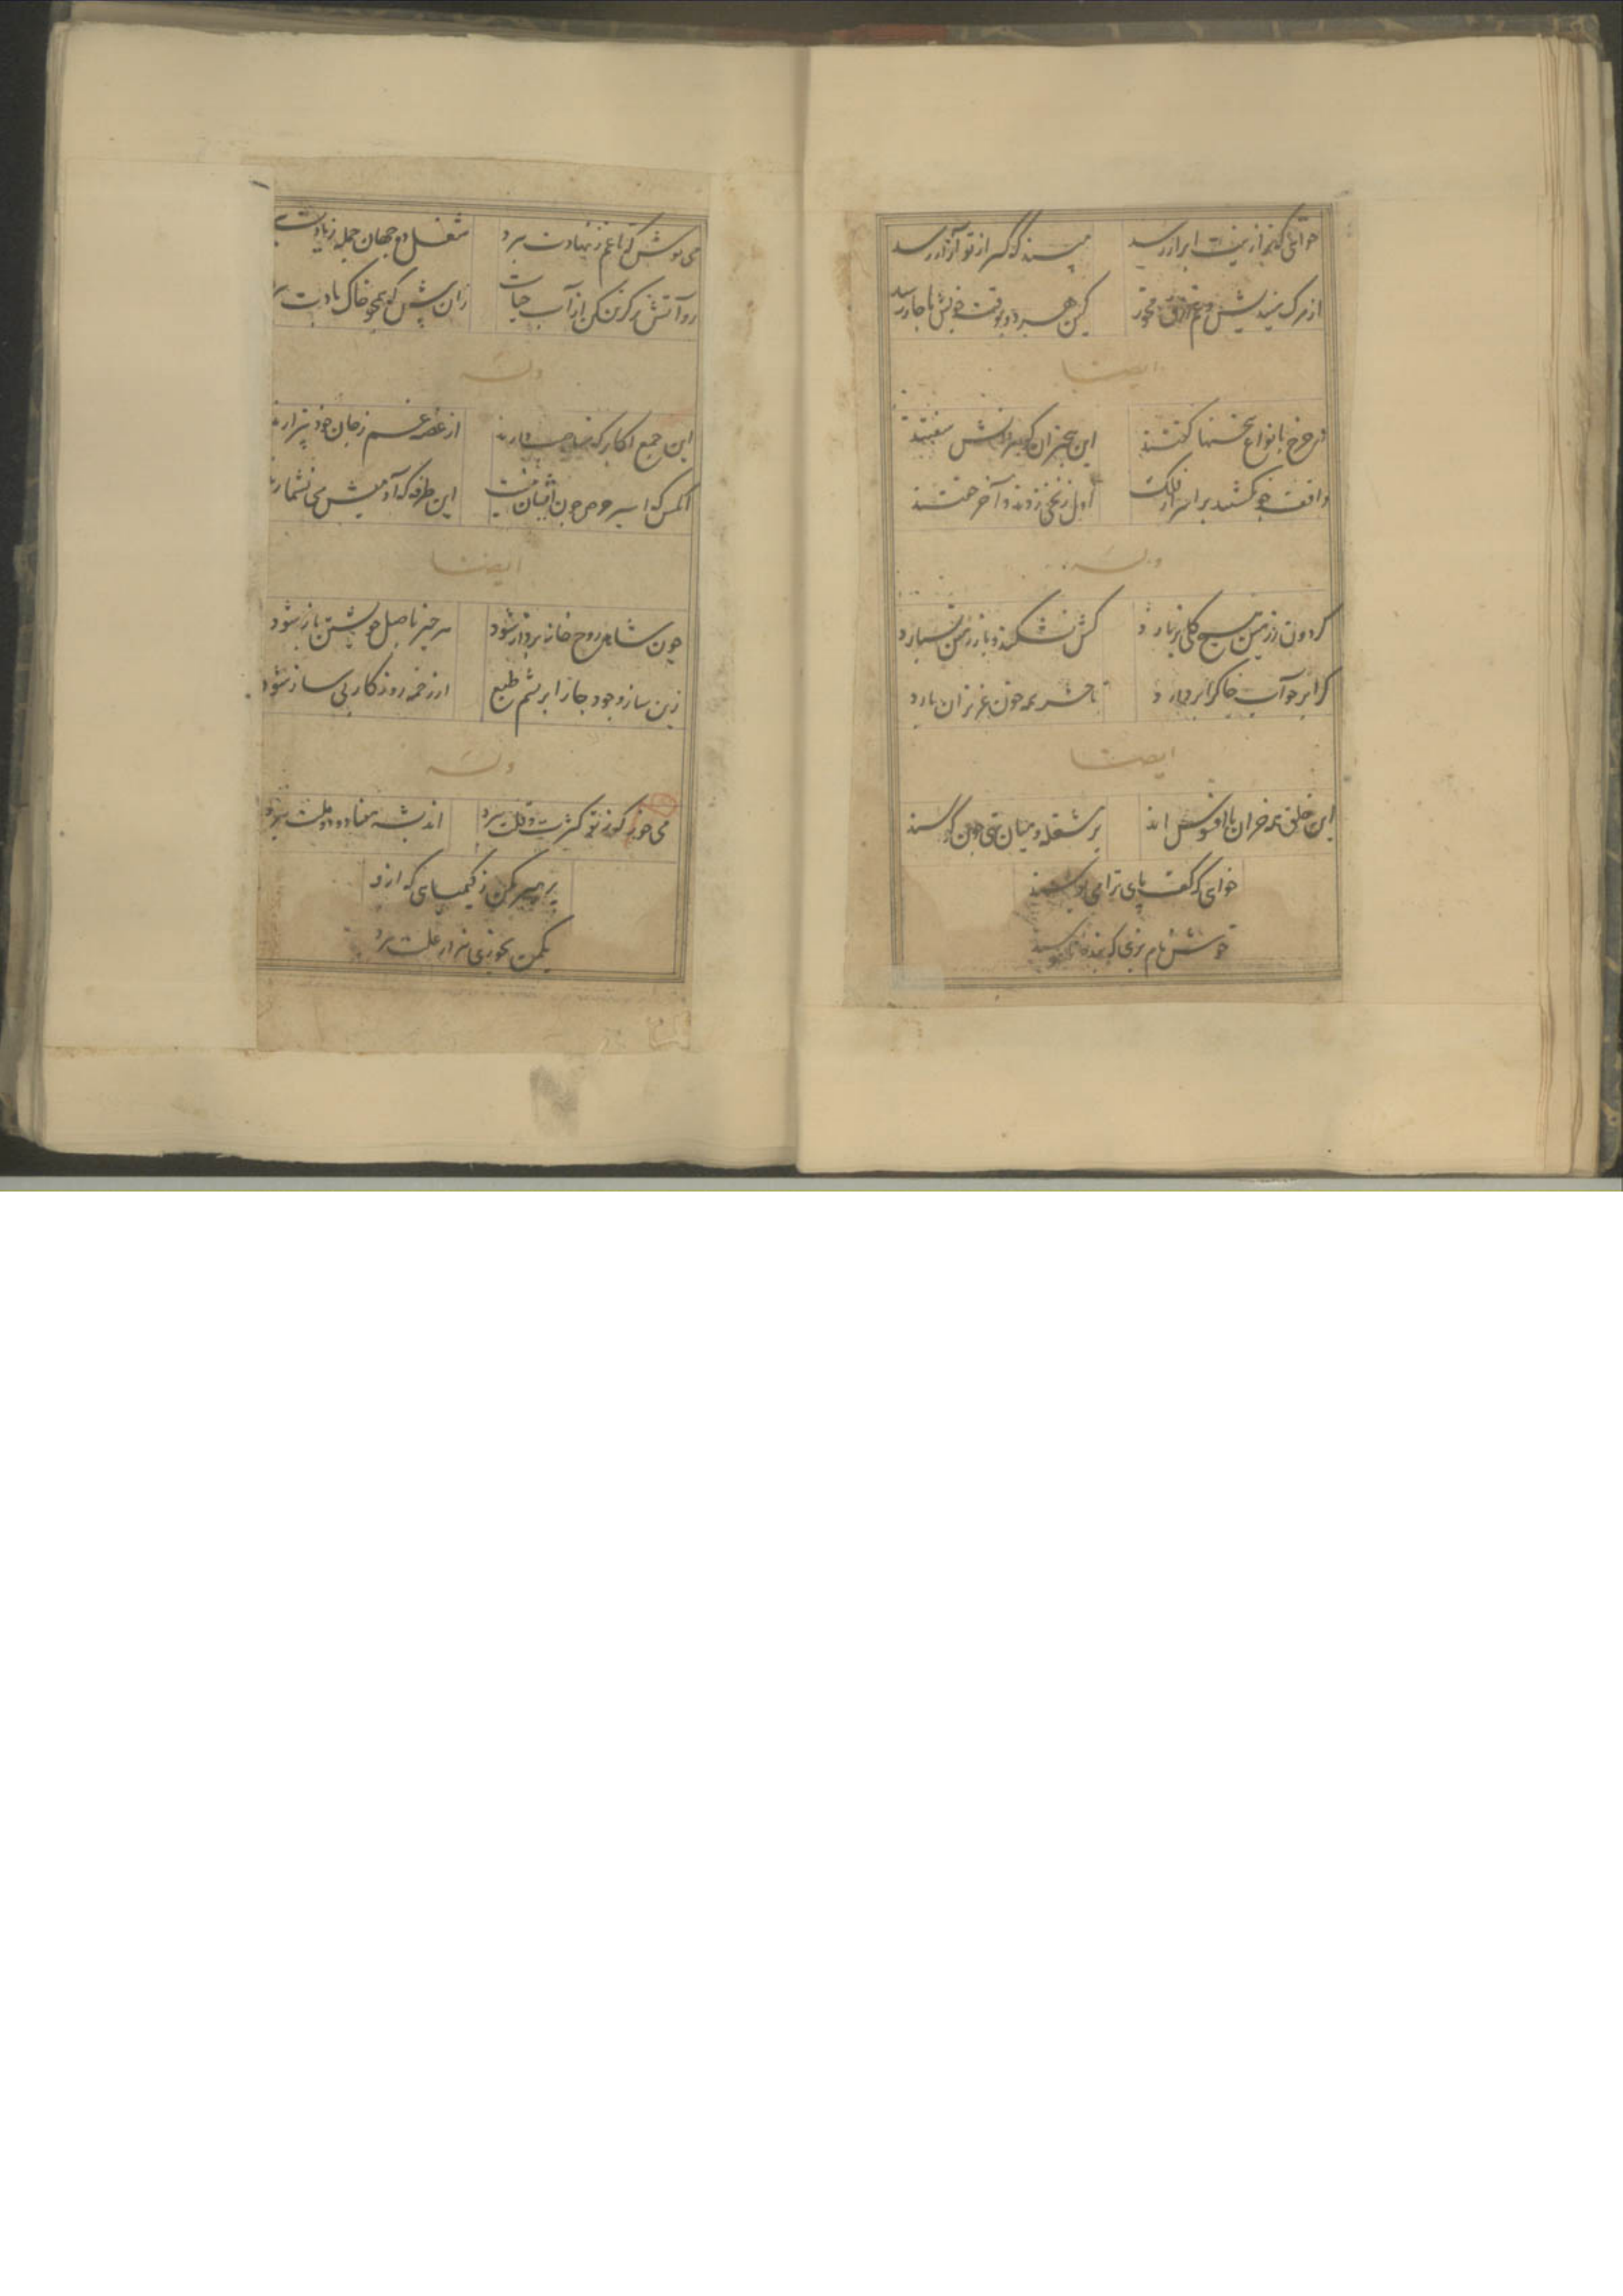 خواهی که ترا رتبت ابرار رسد مپسند که کس را ز تو آزار رسد
از مرگ میندیش و غم رزق مخور کین هر دو بوقت خویش ناچار رسد
ایضا
در چرخ بانواع سخنها گفتند این بیخبران گوهر دانش سفتند
واقف چو نگشتند بر اسرار فلک اول زنخی زدند و آخر خفتند
وله
گردون ز زمین هیچ گلی بر نارد کش نشکند و باز زمین نسپارد
گر ابر چو آب خاک را بردارد تا حشر همه خون عزیزان بارد
ایضا
این خلق همه خران با افسوس اند پر مشغله و میان تهی چون کوسند
خواهی که کف پای ترا می بوسند
خوش نام بزی که بنده ناموسند
می نوش که تا غم ز نهادت ببرد شغل دو جهان جمله ز یادت ببرد
رو آتش تر گزین کن از آب حیات زان پیش که همچو خاک بادت ببرد
وله
این جمع اکابر که مناصب دارند از غصه و غم ز جان خود بیزارند
آنکس که اسیر حرص چون ایشان نیست این طرفه که آدمیش می نشمارند
ایضا
چون شاهد روح خانه پرداز شود هر چیز باصل خویشتن باز شود
این ساز وجود چار ابریشم طبع از زخمه روزگار بی ساز شود
وله
می خور که ز تو کثرت و قلت ببرد اندیشه هفتاد و دو ملت ببرد
پرهیز مکن ز کیمیایی که ازو
یکمن بخوری هزار علت ببرد